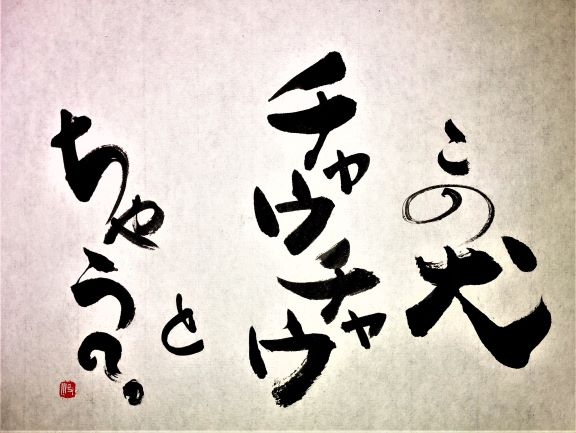 この犬
チャウチャウ
と
ちゃう?